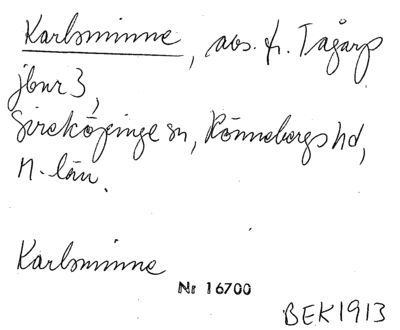 Karlsminne, avs. fr. Tågarp
jbnr 3,
Sireköpinge sn, Rönnebergs hd,
M. län.
Karlsminne
Nr 16700
BEK1913